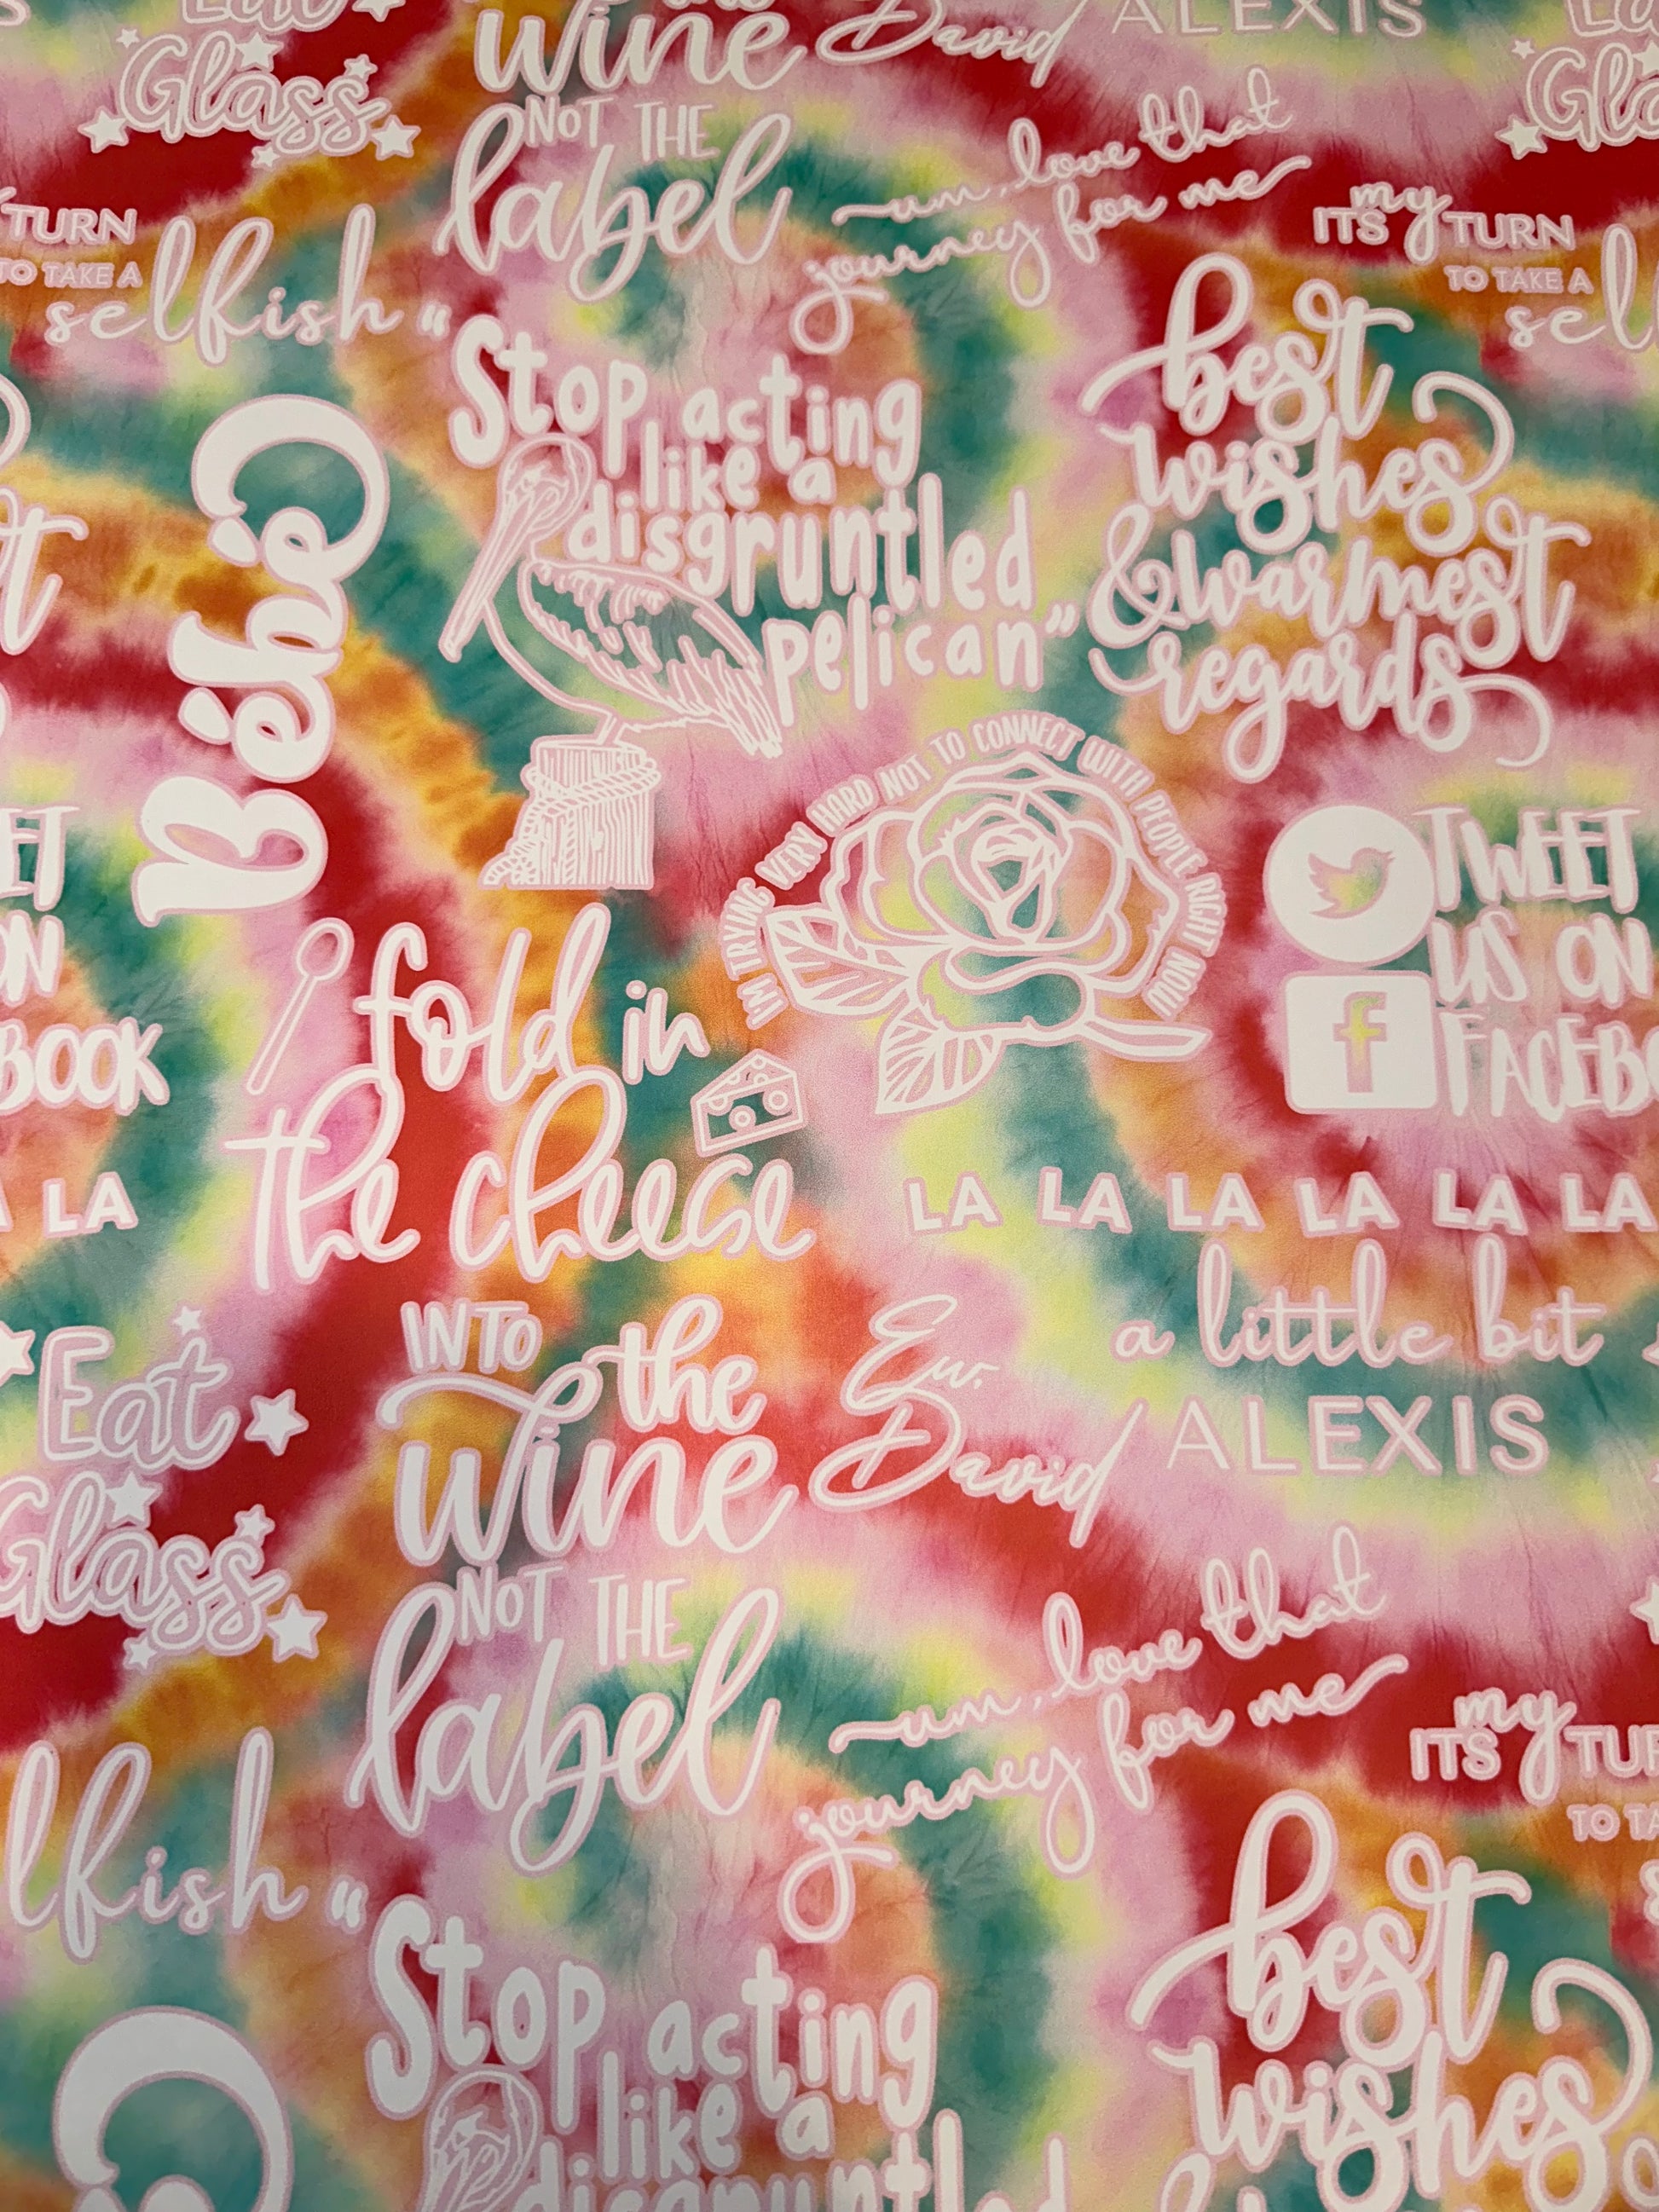 Eat
Glass
wine
NOT THE
label
David
ALEXIS
um, love that
journey for me
TURN
TO TAKE A
selfish
ITS my TURN
TO TAKE A
sel
"Stop acting
like a
disgruntled
pelican"
best
wishes
& warmest
regards
Bébé
IM TRYING VERY HARD NOT TO CONNECT WITH PEOPLE RIGHT NOW
TWEET
US ON
FACEBO
ET
ON
BOOK
fold in
the cheese
LA LA LA LA LA LA
a little bit
ALEXIS
LA
Eat
Glass
INTO
the
wine
NOT THE
label
Ew,
David
um, love that
journey for me
ITS my TUR
TO TA
lfish
"Stop acting
like a
disgruntled
best
wishes